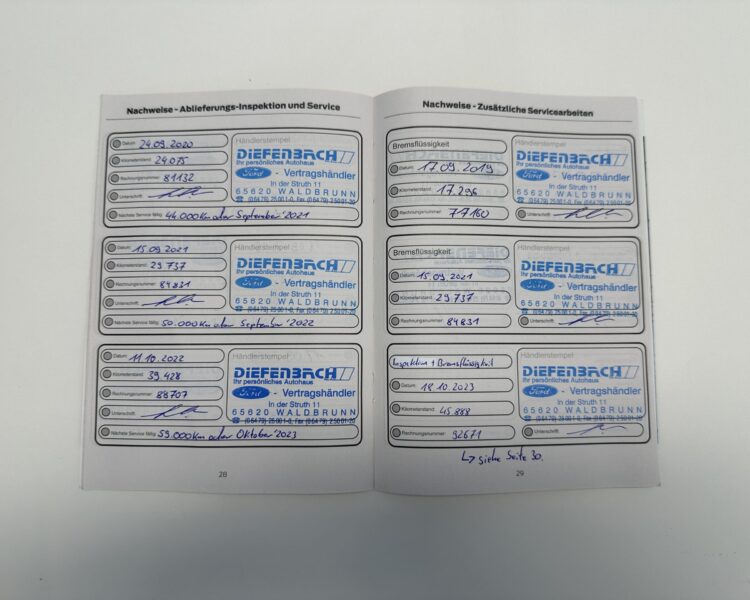 Nachweise - Ablieferungs-Inspektion und Service
Datum 24.09.2020
Kilometerstand 24.075
Rechnungsnummer 81132
Unterschrift
Nächste Service fällig 44.000 Km oder September '2021
Händlerstempel
DIEFENBACH
Ihr persönliches Autohaus
Ford - Vertragshändler
In der Struth 11
65620 WALDBRUNN
☎ (0 64 79) 25 00 1-0, Fax (0 64 79) 2 50 01-20
Datum 15.09.2021
Kilometerstand 29737
Rechnungsnummer 84831
Unterschrift
Nächste Service fällig 50.000 Km oder September '2022
Händlerstempel
DIEFENBACH
Ihr persönliches Autohaus
Ford - Vertragshändler
In der Struth 11
65620 WALDBRUNN
☎ (0 64 79) 25 00 1-0, Fax (0 64 79) 2 50 01-20
Datum 11.10.2022
Kilometerstand 39428
Rechnungsnummer 88707
Unterschrift
Nächste Service fällig 59.000 Km oder Oktober '2023
Händlerstempel
DIEFENBACH
Ihr persönliches Autohaus
Ford - Vertragshändler
In der Struth 11
65620 WALDBRUNN
☎ (0 64 79) 25 00 1-0, Fax (0 64 79) 2 50 01-20
28
Nachweise - Zusätzliche Servicearbeiten
Bremsflüssigkeit
Datum 17.09.2019
Kilometerstand 17.296
Rechnungsnummer 77160
DIEFENBACH
Ihr persönliches Autohaus
Ford - Vertragshändler
In der Struth 11
65620 WALDBRUNN
☎ (0 64 79) 25 00 1-0, Fax (0 64 79) 2 50 01-20
Unterschrift
Bremsflüssigkeit
Datum 15.09.2021
Kilometerstand 29737
Rechnungsnummer 84831
Händlerstempel
DIEFENBACH
Ihr persönliches Autohaus
Ford - Vertragshändler
In der Struth 11
65620 WALDBRUNN
☎ (0 64 79) 25 00 1-0, Fax (0 64 79) 2 50 01-20
Unterschrift
Inspektion + Bremsflüssigkeit
Datum 18.10.2023
Kilometerstand 45.888
Rechnungsnummer 92671
Händlerstempel
DIEFENBACH
Ihr persönliches Autohaus
Ford - Vertragshändler
In der Struth 11
65620 WALDBRUNN
☎ (0 64 79) 25 00 1-0, Fax (0 64 79) 2 50 01-20
Unterschrift
↳ siehe Seite 30.
29